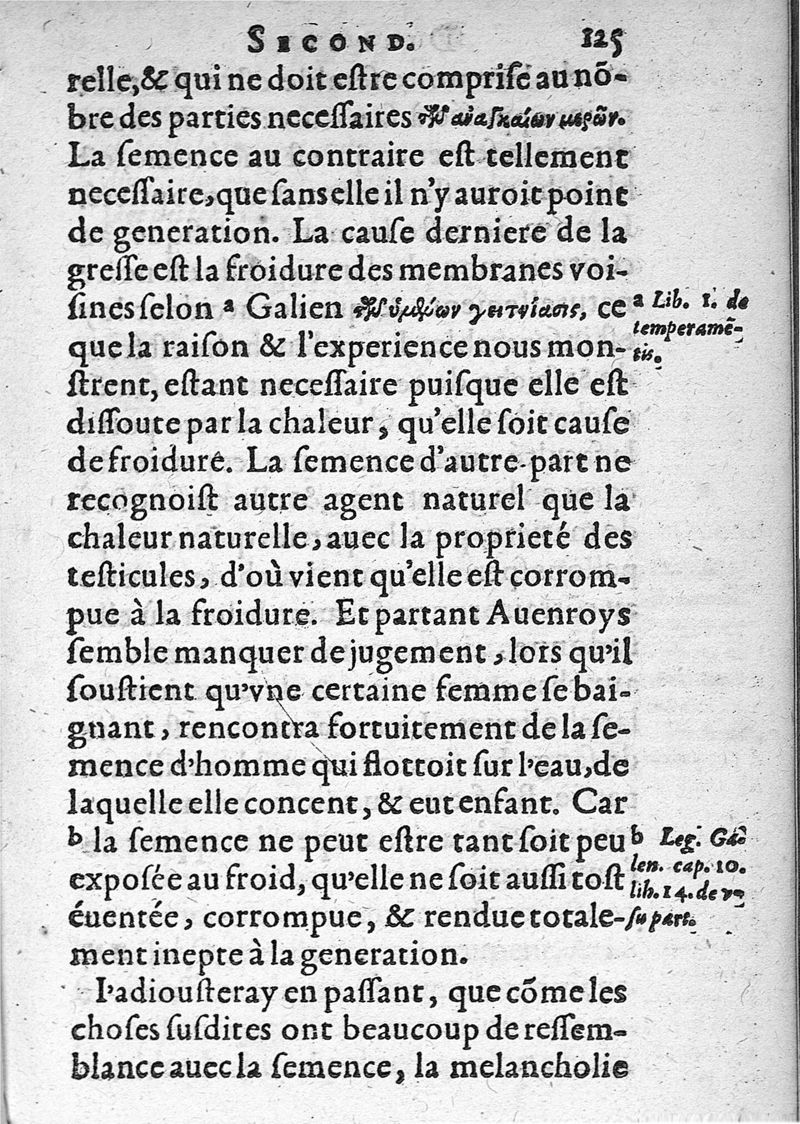 SECOND. 125
relle,& qui ne doit eſtre compriſe au nõ-
bre des parties neceſſaires
La ſemence au contraire eſt tellement
neceſſaire, que ſans elle il n'y auroit point
de generation. La cauſe derniere de la
greſſe eſt la froidure des membranes voi-
ſines ſelon ª Galien ce
ª Lib. 1. de
temperamē-
tis.
que la raiſon & l'experience nous mon-
ſtrent, eſtant neceſſaire puiſque elle eſt
diſſoute par la chaleur, qu'elle ſoit cauſe
de froidure. La ſemence d'autre-part ne
recognoiſt autre agent naturel que la
chaleur naturelle, auec la proprieté des
teſticules, d'où vient qu'elle eſt corrom-
pue à la froidure. Et partant Auenroys
ſemble manquer de jugement, lors qu'il
ſouſtient qu'vne certaine femme ſe bai-
gnant, rencontra fortuitement de la ſe-
mence d'homme qui flottoit ſur l'eau, de
laquelle elle concent, & eut enfant. Car
ᵇ la ſemence ne peut eſtre tant ſoit peu
ᵇ Leg. Ga-
len. cap. 10.
lib. 14. de v-
ſu part.
expoſée au froid, qu'elle ne ſoit auſſi toſt
éuentée, corrompue, & rendue totale-
ment inepte à la generation.
I'adiouſteray en paſſant, que cõme les
choſes ſuſdites ont beaucoup de reſſem-
blance auec la ſemence, la melancholie